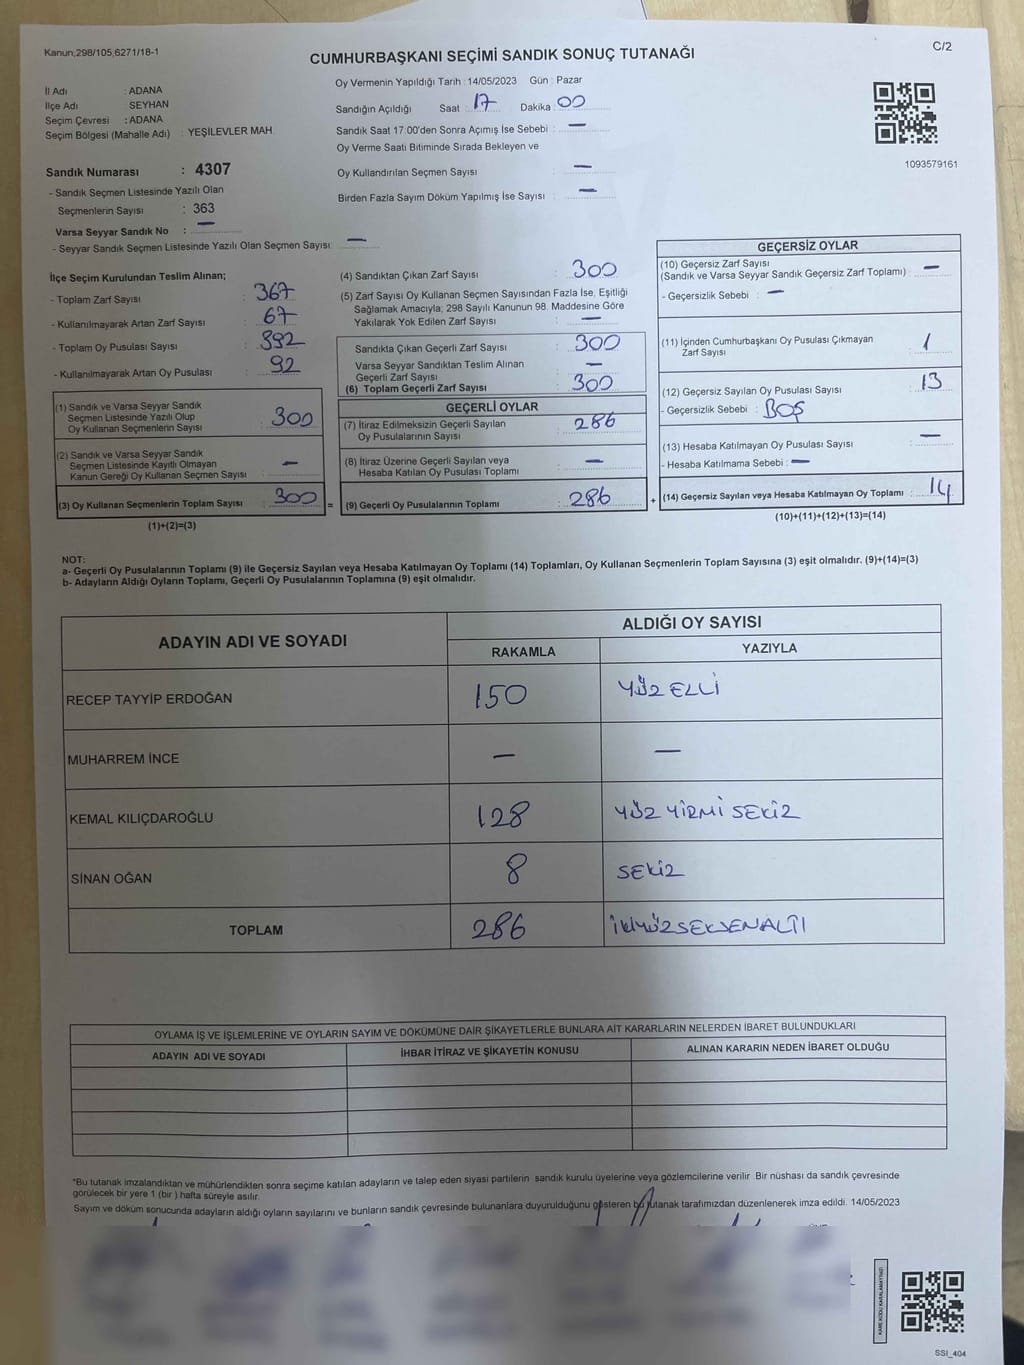 Kanun;298/105,6271/18-1
C/2
CUMHURBAŞKANI SEÇİMİ SANDIK SONUÇ TUTANAĞI
Oy Vermenin Yapıldığı Tarih : 14/05/2023 Gün : Pazar
İl Adı : ADANA
İlçe Adı : SEYHAN
Seçim Çevresi : ADANA
Seçim Bölgesi (Mahalle Adı) : YEŞİLEVLER MAH.
Sandığın Açıldığı Saat : 17 Dakika : 00
Sandık Saat 17:00'den Sonra Açımış İse Sebebi : —
Oy Verme Saati Bitiminde Sırada Bekleyen ve
Oy Kullandırılan Seçmen Sayısı : —
Birden Fazla Sayım Döküm Yapılmış İse Sayısı : —
1093579161
Sandık Numarası : 4307
- Sandık Seçmen Listesinde Yazılı Olan
Seçmenlerin Sayısı : 363
Varsa Seyyar Sandık No : —
- Seyyar Sandık Seçmen Listesinde Yazılı Olan Seçmen Sayısı: —
İlçe Seçim Kurulundan Teslim Alınan;
- Toplam Zarf Sayısı : 367
- Kullanılmayarak Artan Zarf Sayısı : 67
- Toplam Oy Pusulası Sayısı : 392
- Kullanılmayarak Artan Oy Pusulası : 92
(1) Sandık ve Varsa Seyyar Sandık
Seçmen Listesinde Yazılı Olup
Oy Kullanan Seçmenlerin Sayısı : 300
(2) Sandık ve Varsa Seyyar Sandık
Seçmen Listesinde Kayıtlı Olmayan
Kanun Gereği Oy Kullanan Seçmen Sayısı : —
(3) Oy Kullanan Seçmenlerin Toplam Sayısı : 300 =
(1)+(2)=(3)
(4) Sandıktan Çıkan Zarf Sayısı : 300
(5) Zarf Sayısı Oy Kullanan Seçmen Sayısından Fazla İse, Eşitliği
Sağlamak Amacıyla; 298 Sayılı Kanunun 98. Maddesine Göre
Yakılarak Yok Edilen Zarf Sayısı : —
Sandıkta Çıkan Geçerli Zarf Sayısı : 300
Varsa Seyyar Sandıktan Teslim Alınan
Geçerli Zarf Sayısı : —
(6) Toplam Geçerli Zarf Sayısı : 300
GEÇERLİ OYLAR
(7) İtiraz Edilmeksizin Geçerli Sayılan
Oy Pusulalarının Sayısı : 286
(8) İtiraz Üzerine Geçerli Sayılan veya
Hesaba Katılan Oy Pusulası Toplamı : —
(9) Geçerli Oy Pusulalarının Toplamı : 286 +
GEÇERSİZ OYLAR
(10) Geçersiz Zarf Sayısı
(Sandık ve Varsa Seyyar Sandık Geçersiz Zarf Toplamı) : —
- Geçersizlik Sebebi : —
(11) İçinden Cumhurbaşkanı Oy Pusulası Çıkmayan
Zarf Sayısı : 1
(12) Geçersiz Sayılan Oy Pusulası Sayısı : 13
- Geçersizlik Sebebi : BOŞ
(13) Hesaba Katılmayan Oy Pusulası Sayısı : —
- Hesaba Katılmama Sebebi : —
(14) Geçersiz Sayılan veya Hesaba Katılmayan Oy Toplamı : 14
(10)+(11)+(12)+(13)=(14)
NOT:
a- Geçerli Oy Pusulalarının Toplamı (9) ile Geçersiz Sayılan veya Hesaba Katılmayan Oy Toplamı (14) Toplamları, Oy Kullanan Seçmenlerin Toplam Sayısına (3) eşit olmalıdır. (9)+(14)=(3)
b- Adayların Aldığı Oyların Toplamı, Geçerli Oy Pusulalarının Toplamına (9) eşit olmalıdır.
ADAYIN ADI VE SOYADI
ALDIĞI OY SAYISI
RAKAMLA YAZIYLA
RECEP TAYYİP ERDOĞAN 150 YÜZ ELLİ
MUHARREM İNCE — —
KEMAL KILIÇDAROĞLU 128 YÜZ YİRMİ SEKİZ
SİNAN OĞAN 8 SEKİZ
TOPLAM 286 İKİYÜZSEKSENALTI
OYLAMA İŞ VE İŞLEMLERİNE VE OYLARIN SAYIM VE DÖKÜMÜNE DAİR ŞİKAYETLERLE BUNLARA AİT KARARLARIN NELERDEN İBARET BULUNDUKLARI
ADAYIN ADI VE SOYADI İHBAR İTİRAZ VE ŞİKAYETİN KONUSU ALINAN KARARIN NEDEN İBARET OLDUĞU
*Bu tutanak imzalandıktan ve mühürlendikten sonra seçime katılan adayların ve talep eden siyasi partilerin sandık kurulu üyelerine veya gözlemcilerine verilir. Bir nüshası da sandık çevresinde
görülecek bir yere 1 (bir) hafta süreyle asılır.
Sayım ve döküm sonucunda adayların aldığı oyların sayılarını ve bunların sandık çevresinde bulunanlara duyurulduğunu gösteren bu tutanak tarafımızdan düzenlenerek imza edildi. 14/05/2023
KARE KODU KARALAMAYINIZ!
SSI_404